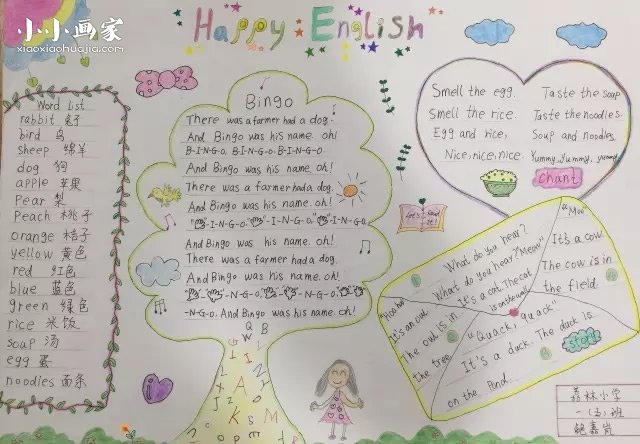 小小画家
xiaoxiaohuajia.com
Happy English
Word List
rabbit 兔子
bird 鸟
sheep 绵羊
dog 狗
apple 苹果
Pear 梨
Peach 桃子
orange 桔子
yellow 黄色
red 红色
blue 蓝色
green 绿色
rice 米饭
soup 汤
egg 蛋
noodles 面条
Bingo
There was a farmer had a dog.
And Bingo was his name. oh!
B-I-N-G-O. B-I-N-G-O. B-I-N-G-O.
And Bingo was his name. oh!
There was a farmer had a dog.
And Bingo was his name. oh!
-I-N-G-O. -I-N-G-O. -I-N-G-O.
And Bingo was his name. oh!
There was a farmer had a dog.
And Bingo was his name. oh!
-N-G-O. -N-G-O.
-N-G-O. And Bingo was his name. oh!
Smell the egg.
Smell the rice.
Egg and rice,
Nice, nice, nice.
Taste the soup
Taste the noodles
Soup and noodles
Yummy, yummy, yummy
chant
Let's read it!
What do you hear?
What do you hear? "Meow"
It's a cat. The cat
is on the wall.
"Moo"
It's a cow.
The cow is in
the field.
"Hoo hoo"
It's an owl.
The owl is in
the tree.
"Quack, quack"
It's a duck. The duck is
on the pond.
story
荔林小学
一(5)班
鲍嘉岚